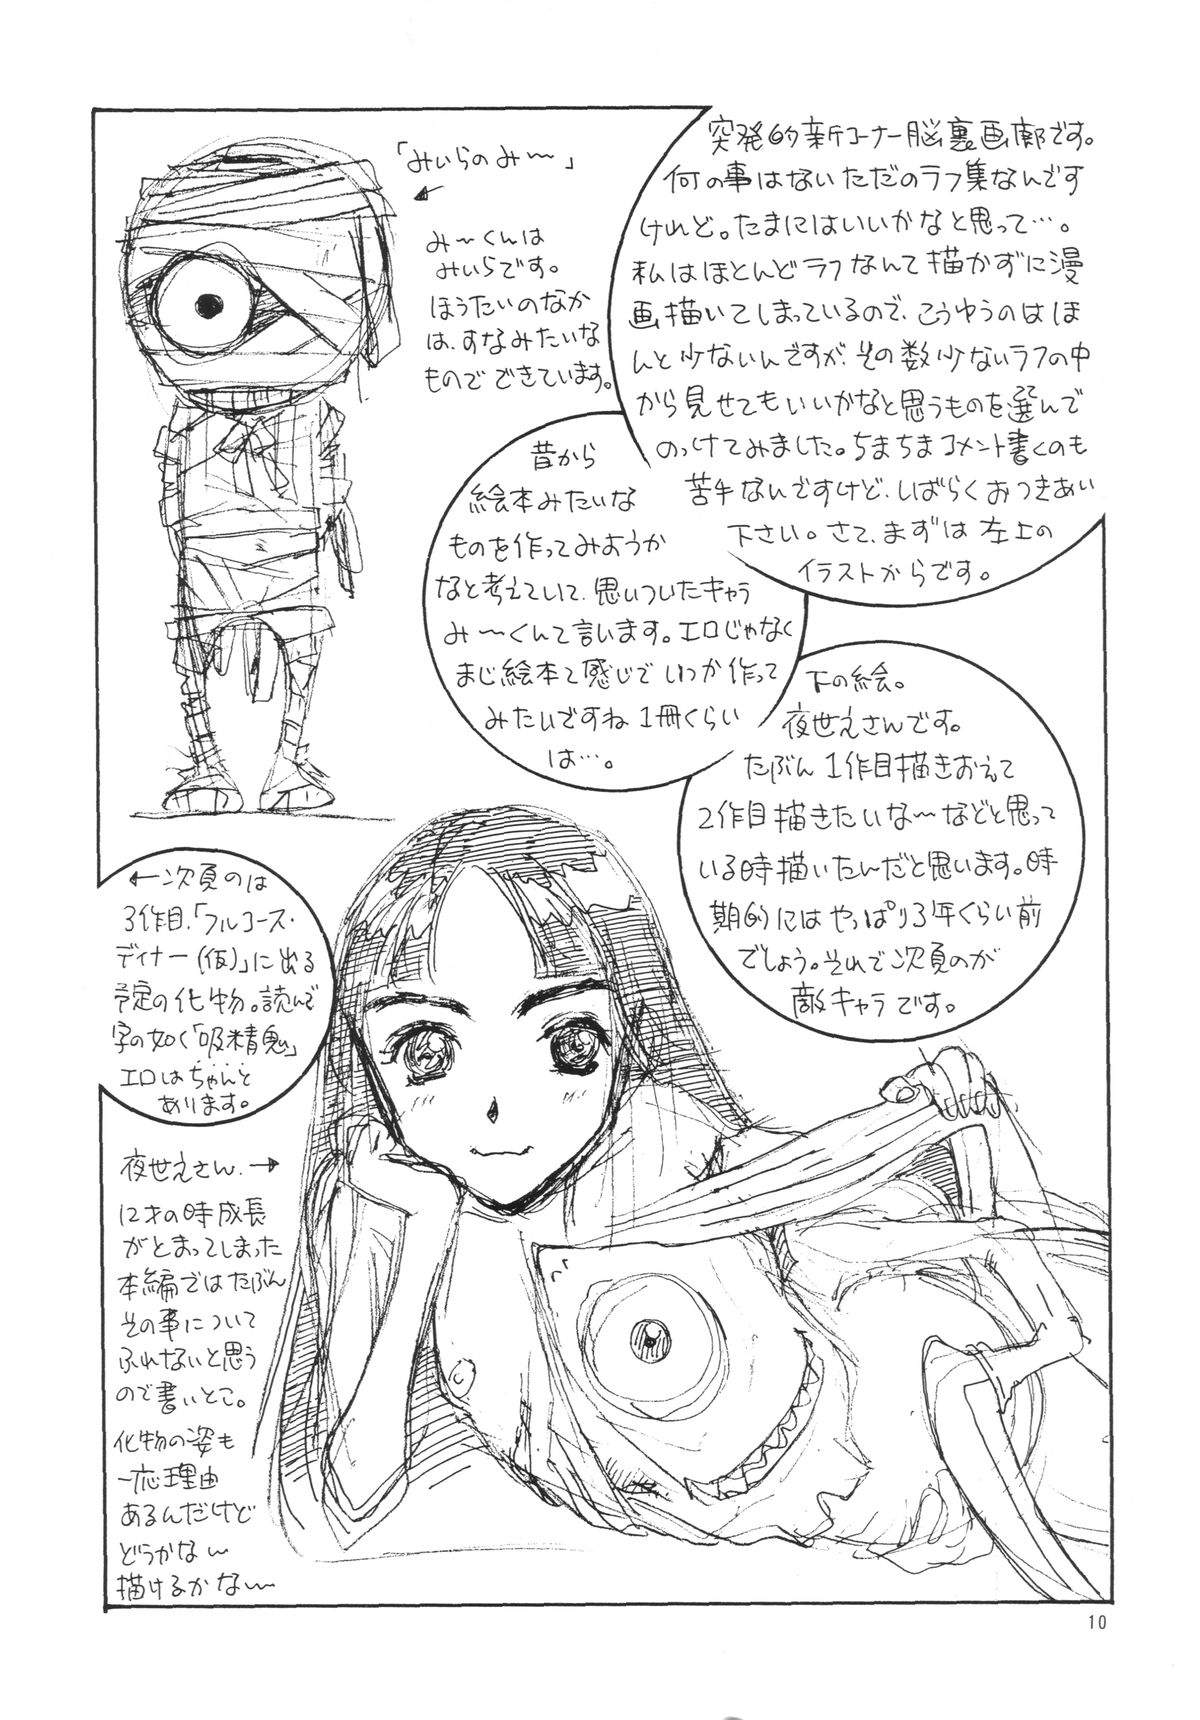 突発的新コーナー脳裏画廊です。
何の事はないただのラフ集なんです
けれど。たまにはいいかなと思って…。
私はほとんどラフなんて描かずに漫
画描いてしまっているので、こうゆうのはほ
んと少ないんですが、その数少ないラフの中
から見せてもいいかなと思うものを選んで
のっけてみました。ちまちまコメント書くのも
苦手なんですけど、しばらくおつきあい
下さい。さて、まずは左上の
イラストからです。
「みいらのみ〜」
←
み〜くんは
みいらです。
ほうたいのなか
は、すなみたいな
ものでできています。
昔から
絵本みたいな
ものを作ってみようか
なと考えていて、思いついたキャラ
み〜くんて言います。エロじゃなく
まじ絵本て感じでいつか作って
みたいですね1冊くらい
は…。
下の絵。
夜世えさんです。
たぶん1作目描きおえて
2作目描きたいな〜などと思って
いる時描いたんだと思います。時
期的にはやっぱり3年くらい前
でしょう。それで次頁のが
敵キャラです。
←次頁のは
3作目、「フルコース・
ディナー(仮)」に出る
予定の化物。読んで
字の如く「吸精鬼」
エロはちゃんと
あります。
夜世えさん、→
12才の時成長
がとまってしまった
本編ではたぶん
その事について
ふれないと思う
ので書いとこ。
化物の姿も
一応理由
あるんだけど
どうかな〜
描けるかな〜
10